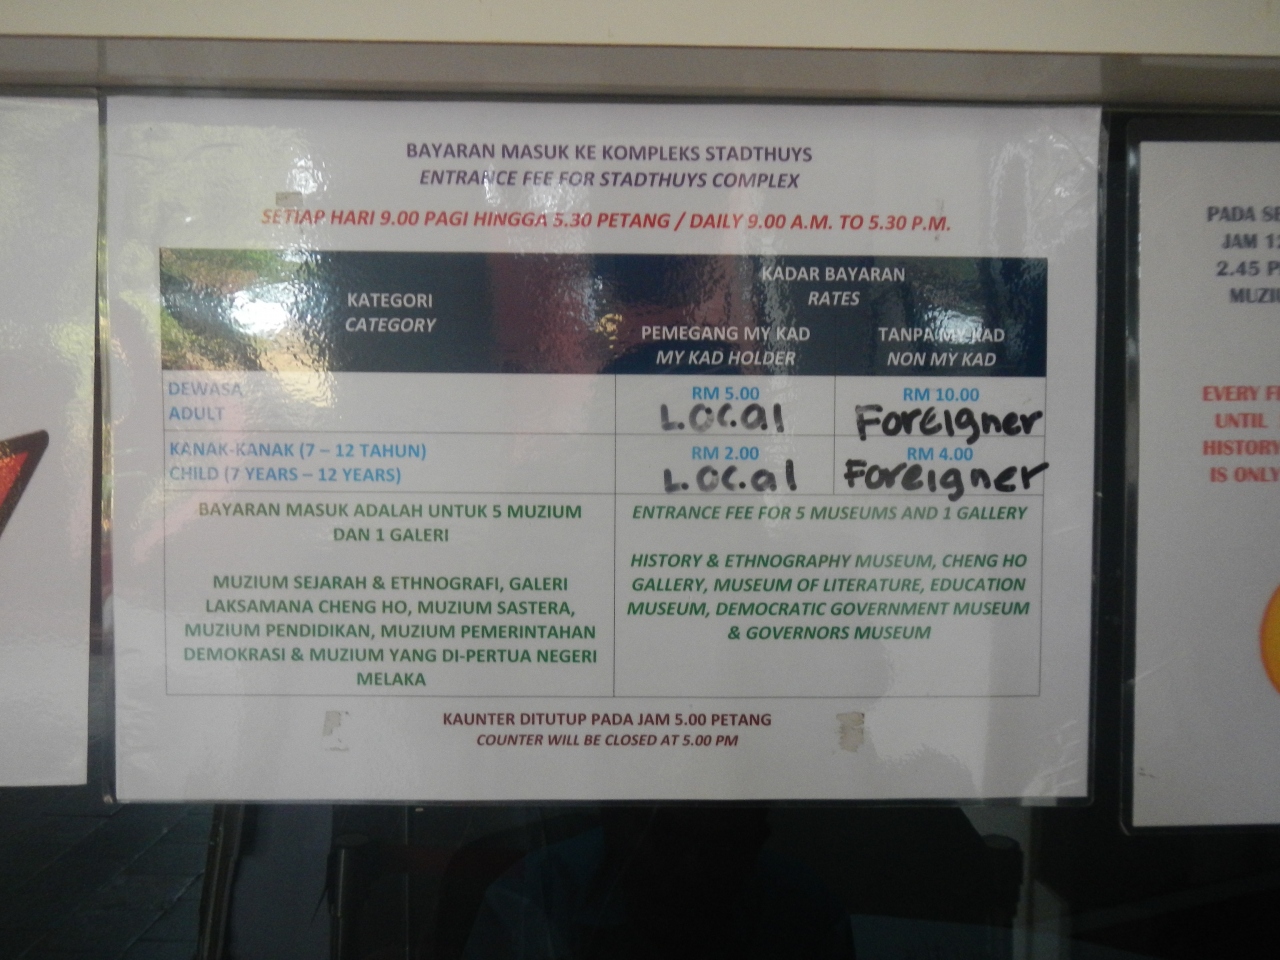 BAYARAN MASUK KE KOMPLEKS STADTHUYS
ENTRANCE FEE FOR STADTHUYS COMPLEX
SETIAP HARI 9.00 PAGI HINGGA 5.30 PETANG / DAILY 9.00 A.M. TO 5.30 P.M.
KATEGORI
CATEGORY
KADAR BAYARAN
RATES
PEMEGANG MY KAD
MY KAD HOLDER
TANPA MY KAD
NON MY KAD
DEWASA
ADULT
RM 5.00
Local
RM 10.00
Foreigner
KANAK-KANAK (7 – 12 TAHUN)
CHILD (7 YEARS – 12 YEARS)
RM 2.00
Local
RM 4.00
Foreigner
BAYARAN MASUK ADALAH UNTUK 5 MUZIUM
DAN 1 GALERI
MUZIUM SEJARAH & ETHNOGRAFI, GALERI
LAKSAMANA CHENG HO, MUZIUM SASTERA,
MUZIUM PENDIDIKAN, MUZIUM PEMERINTAHAN
DEMOKRASI & MUZIUM YANG DI-PERTUA NEGERI
MELAKA
ENTRANCE FEE FOR 5 MUSEUMS AND 1 GALLERY
HISTORY & ETHNOGRAPHY MUSEUM, CHENG HO
GALLERY, MUSEUM OF LITERATURE, EDUCATION
MUSEUM, DEMOCRATIC GOVERNMENT MUSEUM
& GOVERNORS MUSEUM
KAUNTER DITUTUP PADA JAM 5.00 PETANG
COUNTER WILL BE CLOSED AT 5.00 PM
PADA
JAM
2.45
EVERY
UNTIL
HISTORY
IS ONLY